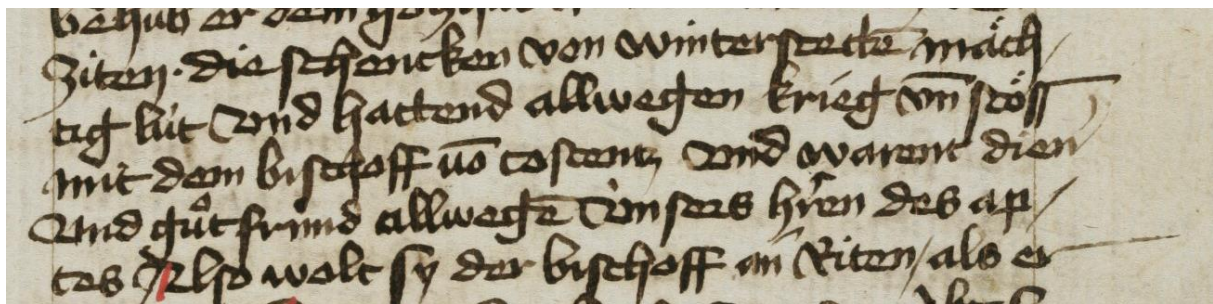 behub er dem
ziten · die schencken von winterstettē mäch/
tig lüt vnd hattend allwegen krieg vn̄ stöss
mit dem bischoff uō costentz vnd warent dien
vnd gůt fründ allwegē vnsers hr̄en des ap/
tes Also wolt sy der bischoff an Riten / als er